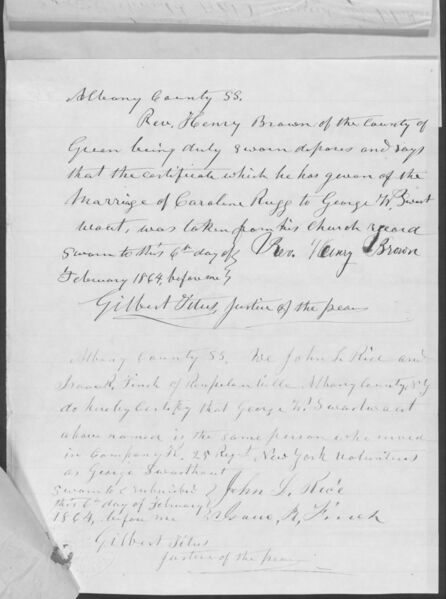 Albany County SS.
Rev. Henry Brown of the County of
Green being duly sworn deposes and says
that the certificate which he has given of the
Marriage of Caroline Rugg to George W. Swart
wout, was taken from his church record
Sworn to this 6th day of Rev. Henry Brown
February 1864, before me
Gilbert Titus, Justice of the peace
Albany County SS. We John L. Rice and
Isaac R. Finch of Albany County N.Y.
do hereby Certify that George W. Swartwout
above named is the same person who served
in Company K, 25 Regt New York Volunteers
as George Swarthout
Sworn to & subscribed John L. Rice
this 6th day of February
1864, before me Isaac R. Finch
Gilbert Titus
Justice of the peace